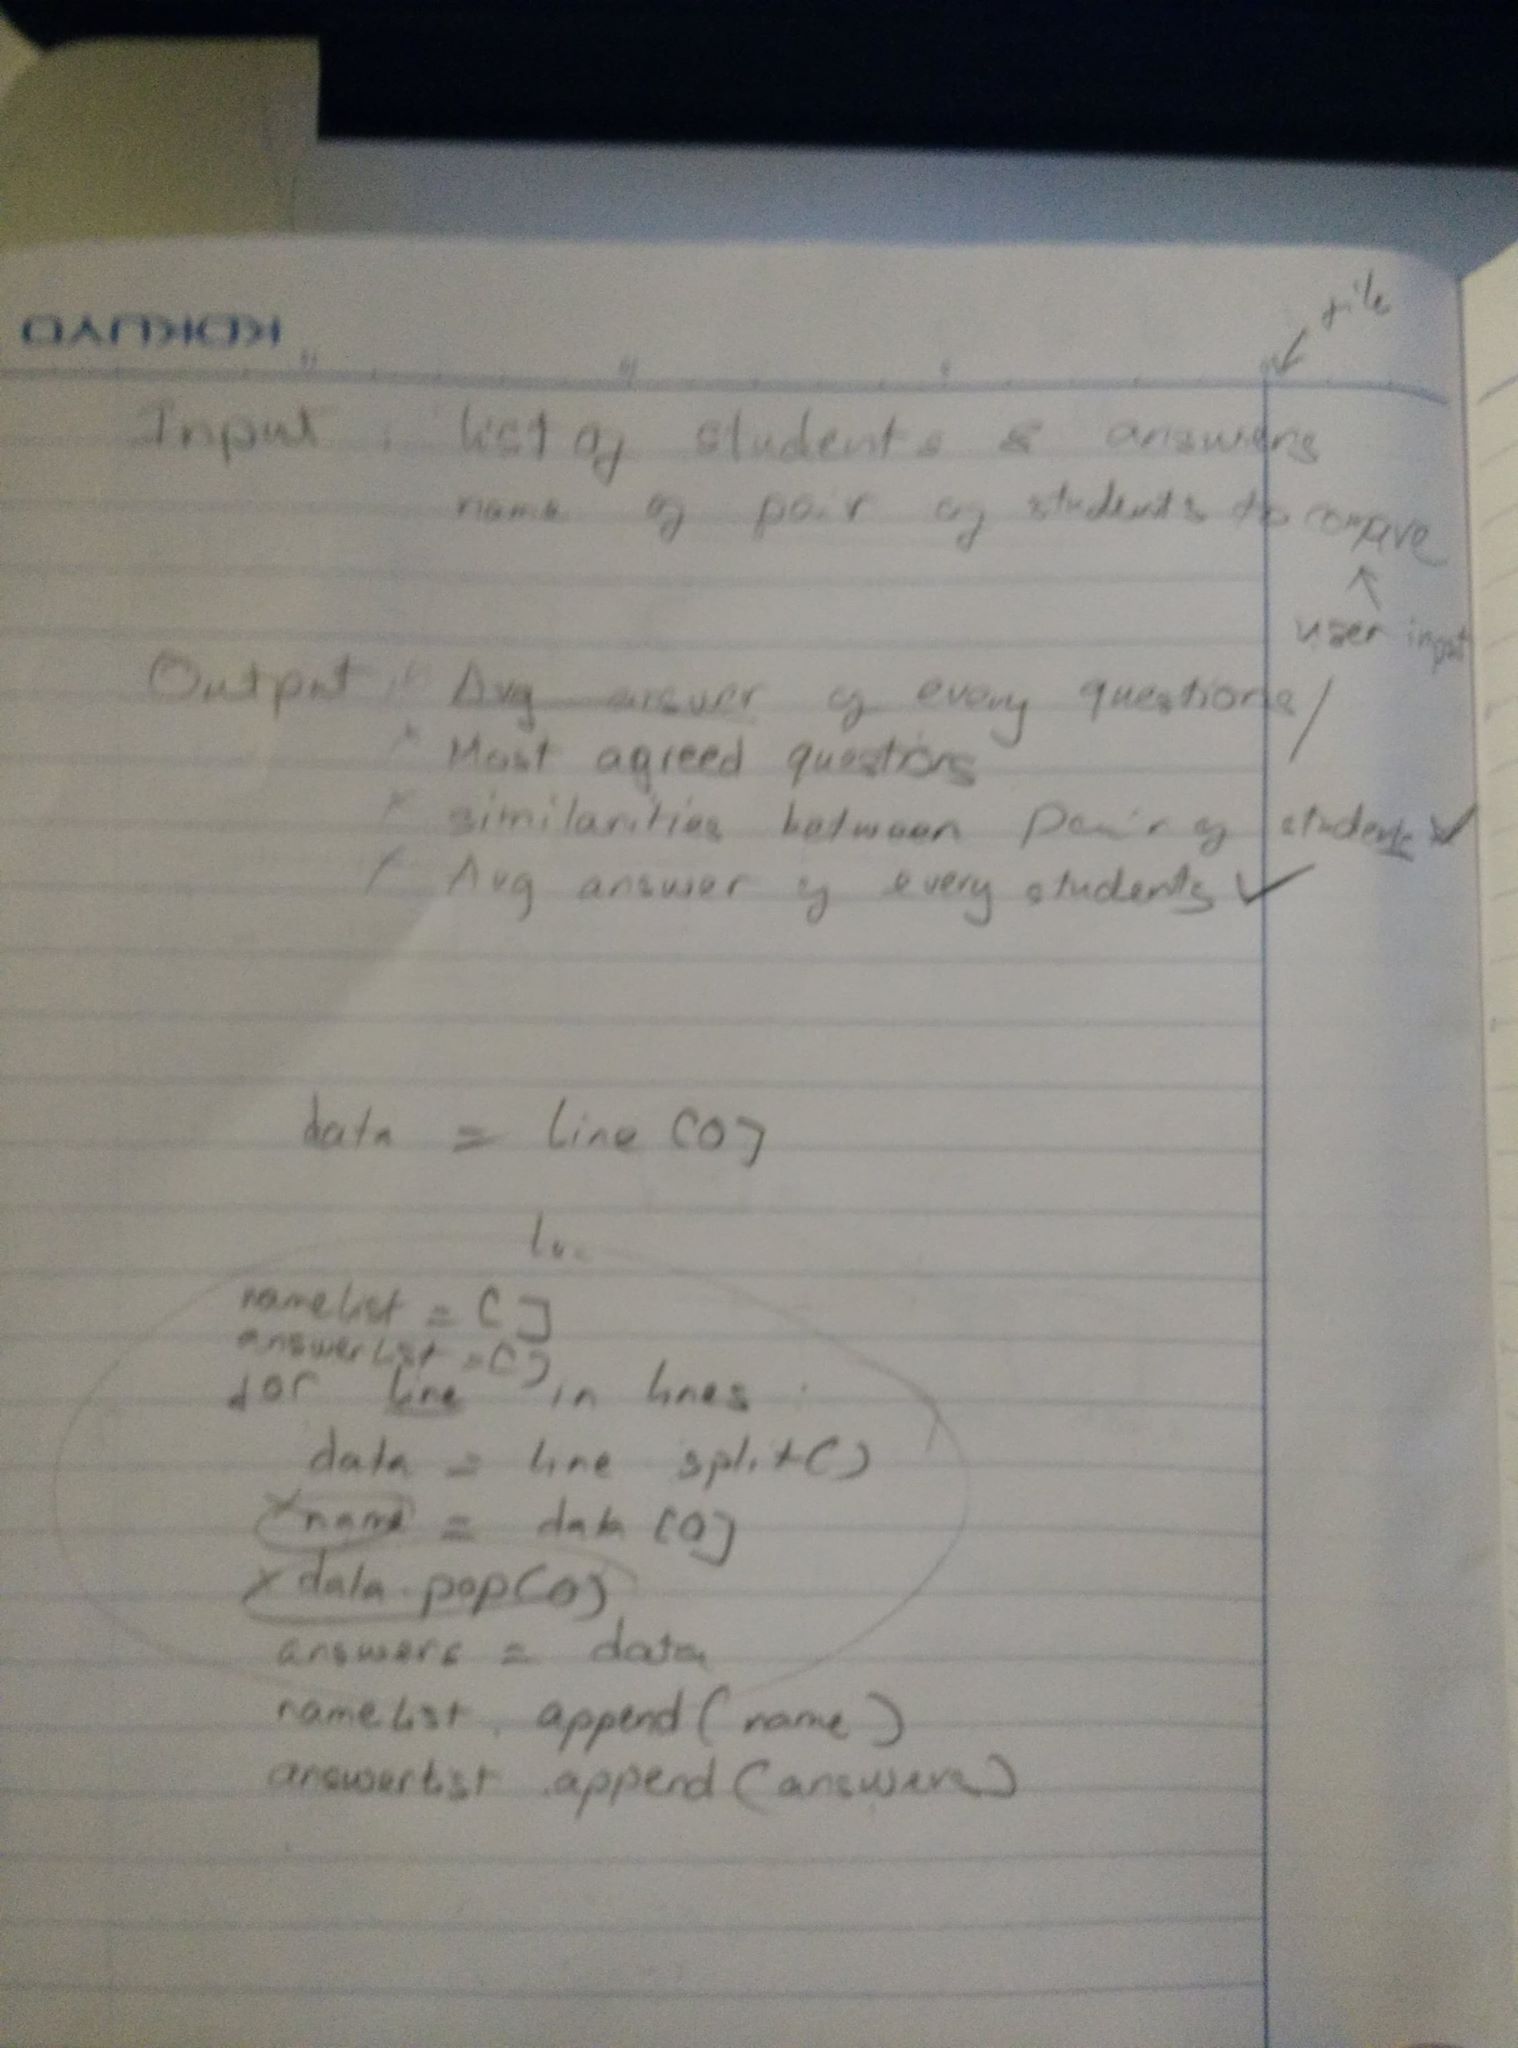 file
KOKUYO
Input : list of students & answers
name of pair of students to compare
user input
Output : Avg answer of every questions /
x Most agreed questions
x similarities between pair of students ✓
x Avg answer of every students ✓
data = line [0]
namelist = []
answerlist = []
for line in lines :
data = line split()
x name = data [0]
x data.pop(0)
answers = data
namelist . append ( name )
answerlist .append (answers)